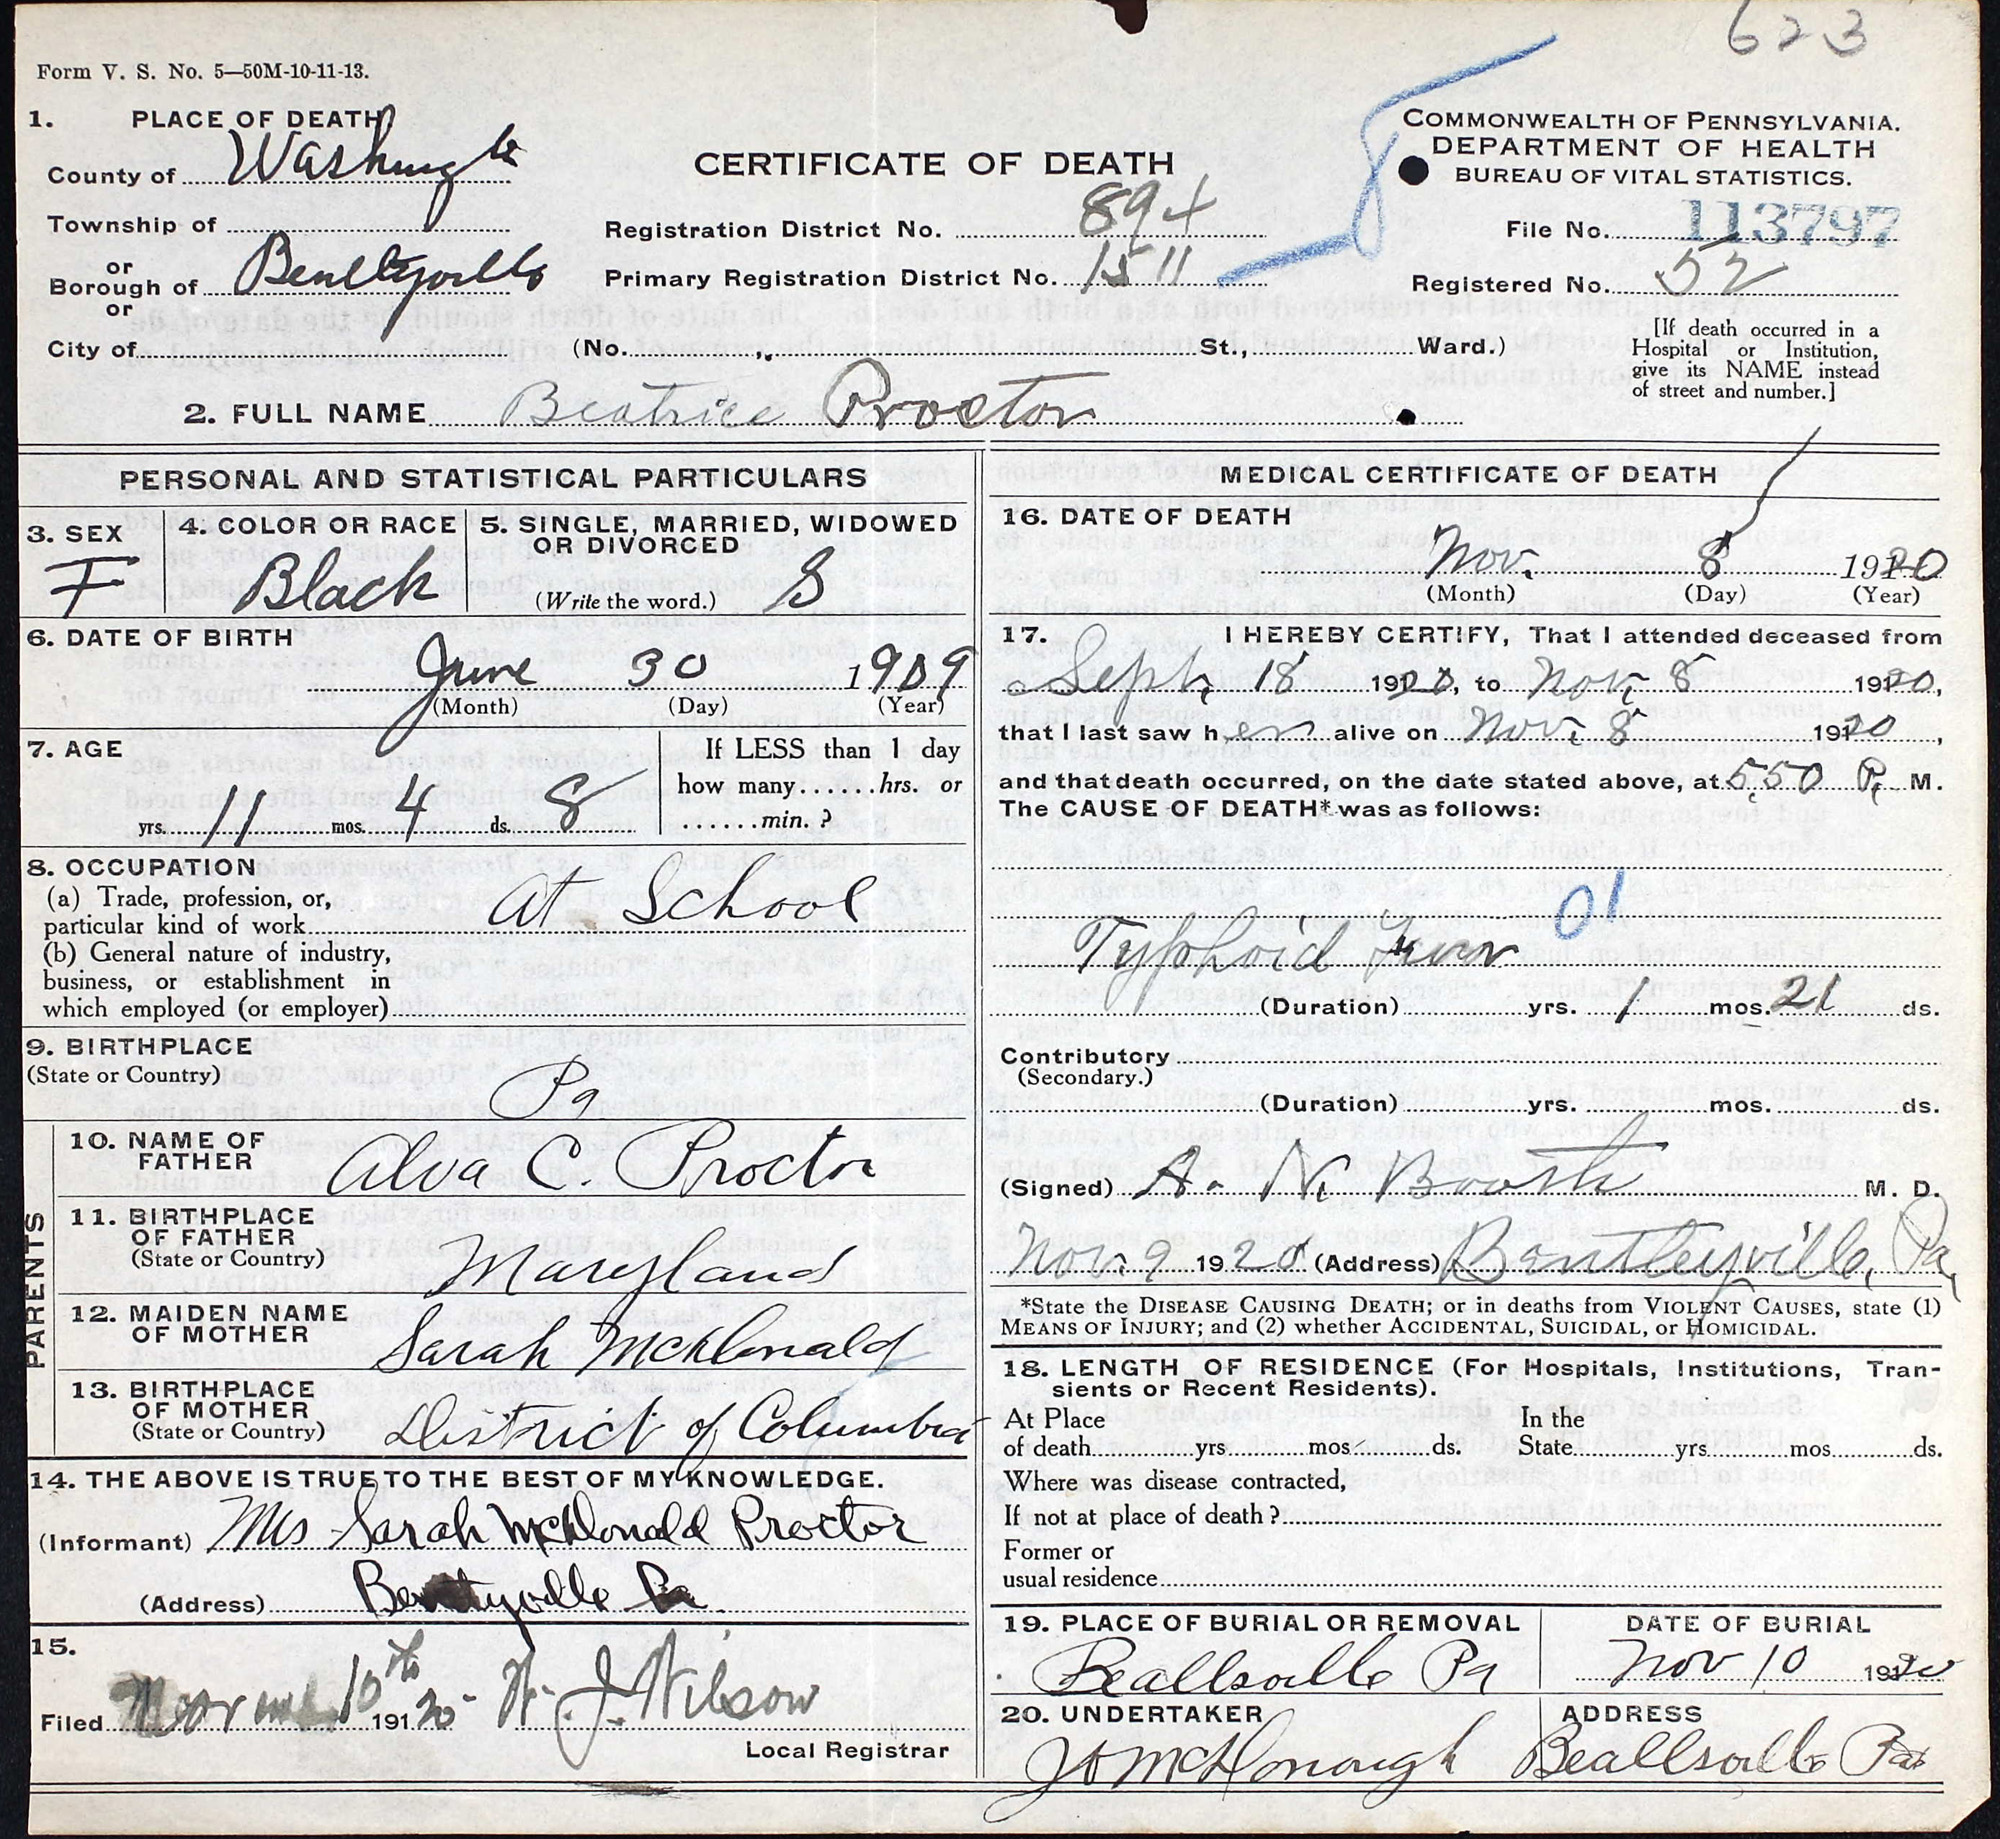 623
Form V. S. No. 5—50M-10-11-13.
1. PLACE OF DEATH
County of Washington
Township of
or
Borough of Bentleyville
or
City of (No. , St., Ward.)
CERTIFICATE OF DEATH
Registration District No. 894
Primary Registration District No. 1511
COMMONWEALTH OF PENNSYLVANIA.
DEPARTMENT OF HEALTH
BUREAU OF VITAL STATISTICS.
File No. 113797
Registered No. 52
[If death occurred in a
Hospital or Institution,
give its NAME instead
of street and number.]
2. FULL NAME Beatrice Proctor
PERSONAL AND STATISTICAL PARTICULARS
3. SEX
F
4. COLOR OR RACE
Black
5. SINGLE, MARRIED, WIDOWED
OR DIVORCED
(Write the word.) S
6. DATE OF BIRTH
June 30 1909
(Month) (Day) (Year)
7. AGE
yrs. 11 mos. 4 ds. 8
If LESS than 1 day
how many......hrs. or
......min. ?
8. OCCUPATION
(a) Trade, profession, or,
particular kind of work At School
(b) General nature of industry,
business, or establishment in
which employed (or employer)
9. BIRTHPLACE
(State or Country)
Pa
PARENTS
10. NAME OF
FATHER
Alva C. Proctor
11. BIRTHPLACE
OF FATHER
(State or Country)
Maryland
12. MAIDEN NAME
OF MOTHER
Sarah McDonald
13. BIRTHPLACE
OF MOTHER
(State or Country)
District of Columbia
14. THE ABOVE IS TRUE TO THE BEST OF MY KNOWLEDGE.
(Informant) Mrs Sarah McDonald Proctor
(Address) Bentleyville Pa.
15.
Filed 10th 1920 W. J. Wilson
Local Registrar
MEDICAL CERTIFICATE OF DEATH
16. DATE OF DEATH
Nov. 8 1920
(Month) (Day) (Year)
17. I HEREBY CERTIFY, That I attended deceased from
Sept. 18 1920, to Nov. 8 1920,
that I last saw her alive on Nov. 8 1920,
and that death occurred, on the date stated above, at 5.50 P. M.
The CAUSE OF DEATH* was as follows:
01
Typhoid Fever
(Duration) yrs. 1 mos. 21 ds.
Contributory
(Secondary.)
(Duration) yrs. mos. ds.
(Signed) A. N. Booth M. D.
Nov. 9 1920 (Address) Bentleyville, Pa.
*State the DISEASE CAUSING DEATH; or in deaths from VIOLENT CAUSES, state (1)
MEANS OF INJURY; and (2) whether ACCIDENTAL, SUICIDAL, or HOMICIDAL.
18. LENGTH OF RESIDENCE (For Hospitals, Institutions, Tran-
sients or Recent Residents).
At Place In the
of death yrs mos ds. State yrs mos ds.
Where was disease contracted,
If not at place of death ?
Former or
usual residence
19. PLACE OF BURIAL OR REMOVAL
Beallsville Pa
DATE OF BURIAL
Nov 10 1920
20. UNDERTAKER
J O McDonough
ADDRESS
Beallsville Pa